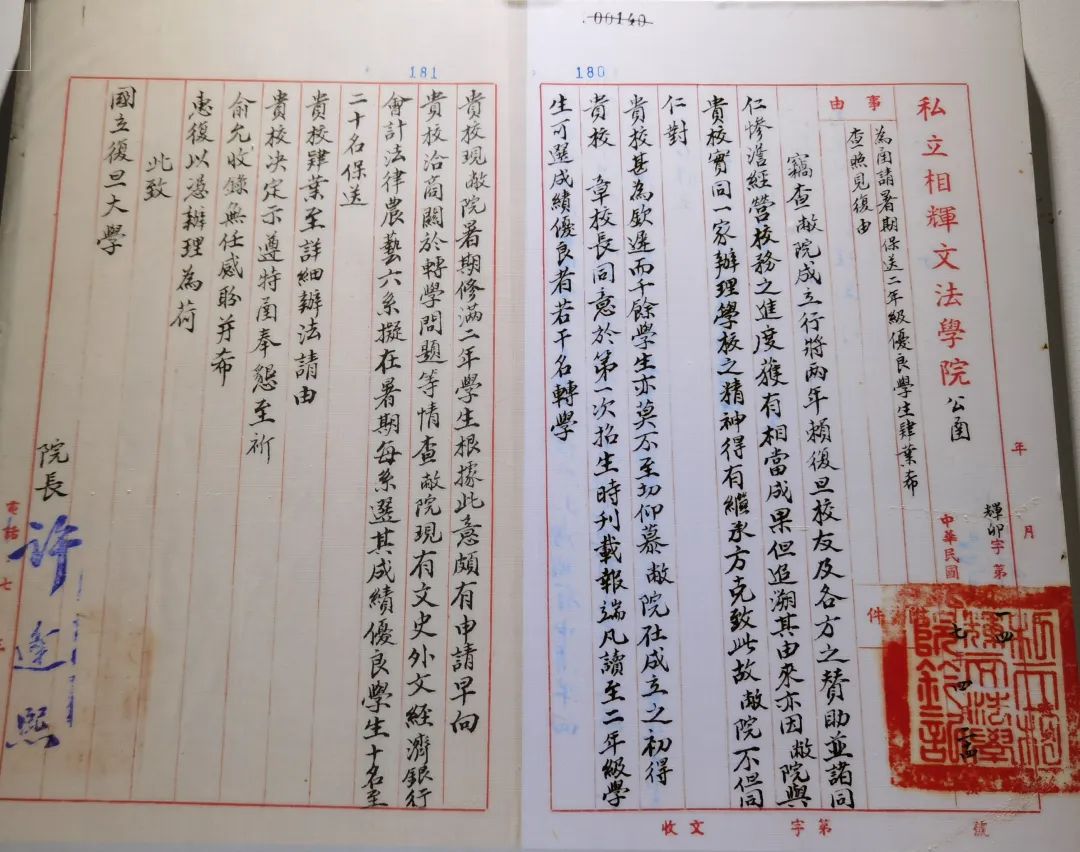 00140
180
私立相輝文法學院公函
年
月
輝卯字第
中華民國
事由
為函請暑期保送二年級優良學生肄業希
查照見復由
件
竊查敝院成立行將兩年賴復旦校友及各方之贊助並諸同
仁慘澹經營校務之進度獲有相當成果但追溯其由來亦因敝院與
貴校實同一家辦理學校之精神得有繼承方克致此故敝院不但同
仁對
貴校甚為欽遲而千餘學生亦莫不至切仰慕敝院在成立之初得
貴校 章校長同意於第一次招生時刊載報端凡讀至二年級學
生可選成績優良者若干名轉學
收文 字第 號
181
貴校現敝院暑期修滿二年學生根據此意頗有申請早向
貴校洽商關於轉學問題等情查敝院現有文史外文經濟銀行
會計法律農藝六系擬在暑期每系選其成績優良學生十名至
二十名保送
貴校肄業至詳細辦法請由
貴校決定示遵特函奉懇至祈
俞允收錄無任感盼并希
惠復以憑辦理為荷
此致
國立復旦大學
院長 許逢熙
電話 七